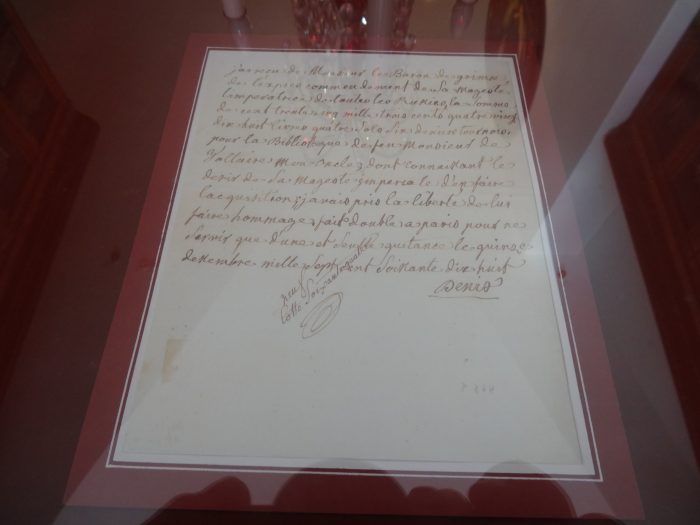 jai reçu de Monsieur le Baron de grimm
de lexpres commendement de Sa Majesté
limperatrice de toutes les Russies, la somme
de cent trente cinq mille trois cents quatre vingt
dix huit Livres quatre Sols Six deniers tournois
pour la Biblioteque de feu Monsieur de
Voltaire Mon Oncle, dont connaissant le
desir de Sa Majesté imperiale d'en faire
lacquisition, j'avais pris la liberté de lui
faire hommage, fait double a paris pour ne
Servir que d'une et Seulle quitance le quinze
decembre mille Sept cent Soixante dix huit
Denis
Cotte Soixante quatre